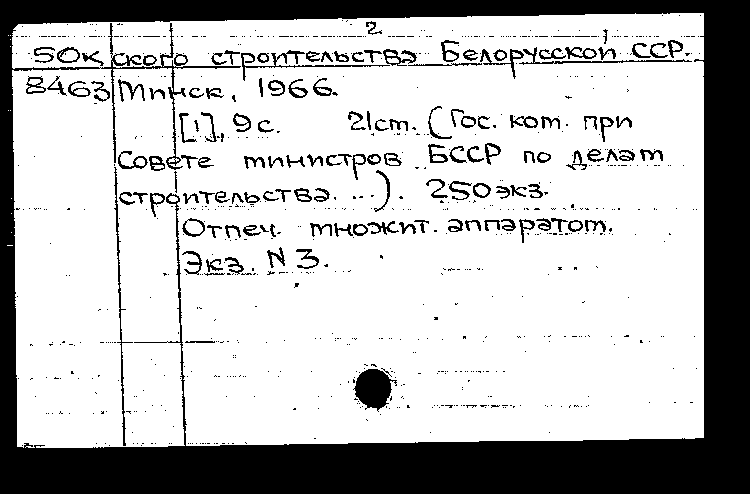 2
50к ского строительства Белорусской ССР.
8463 Минск, 1966.
[1], 9с. 21см. (Гос. ком. при
Совете министров БССР по делам
строительства. ...). 250экз.
Отпеч. множит. аппаратом.
Экз. N 3.